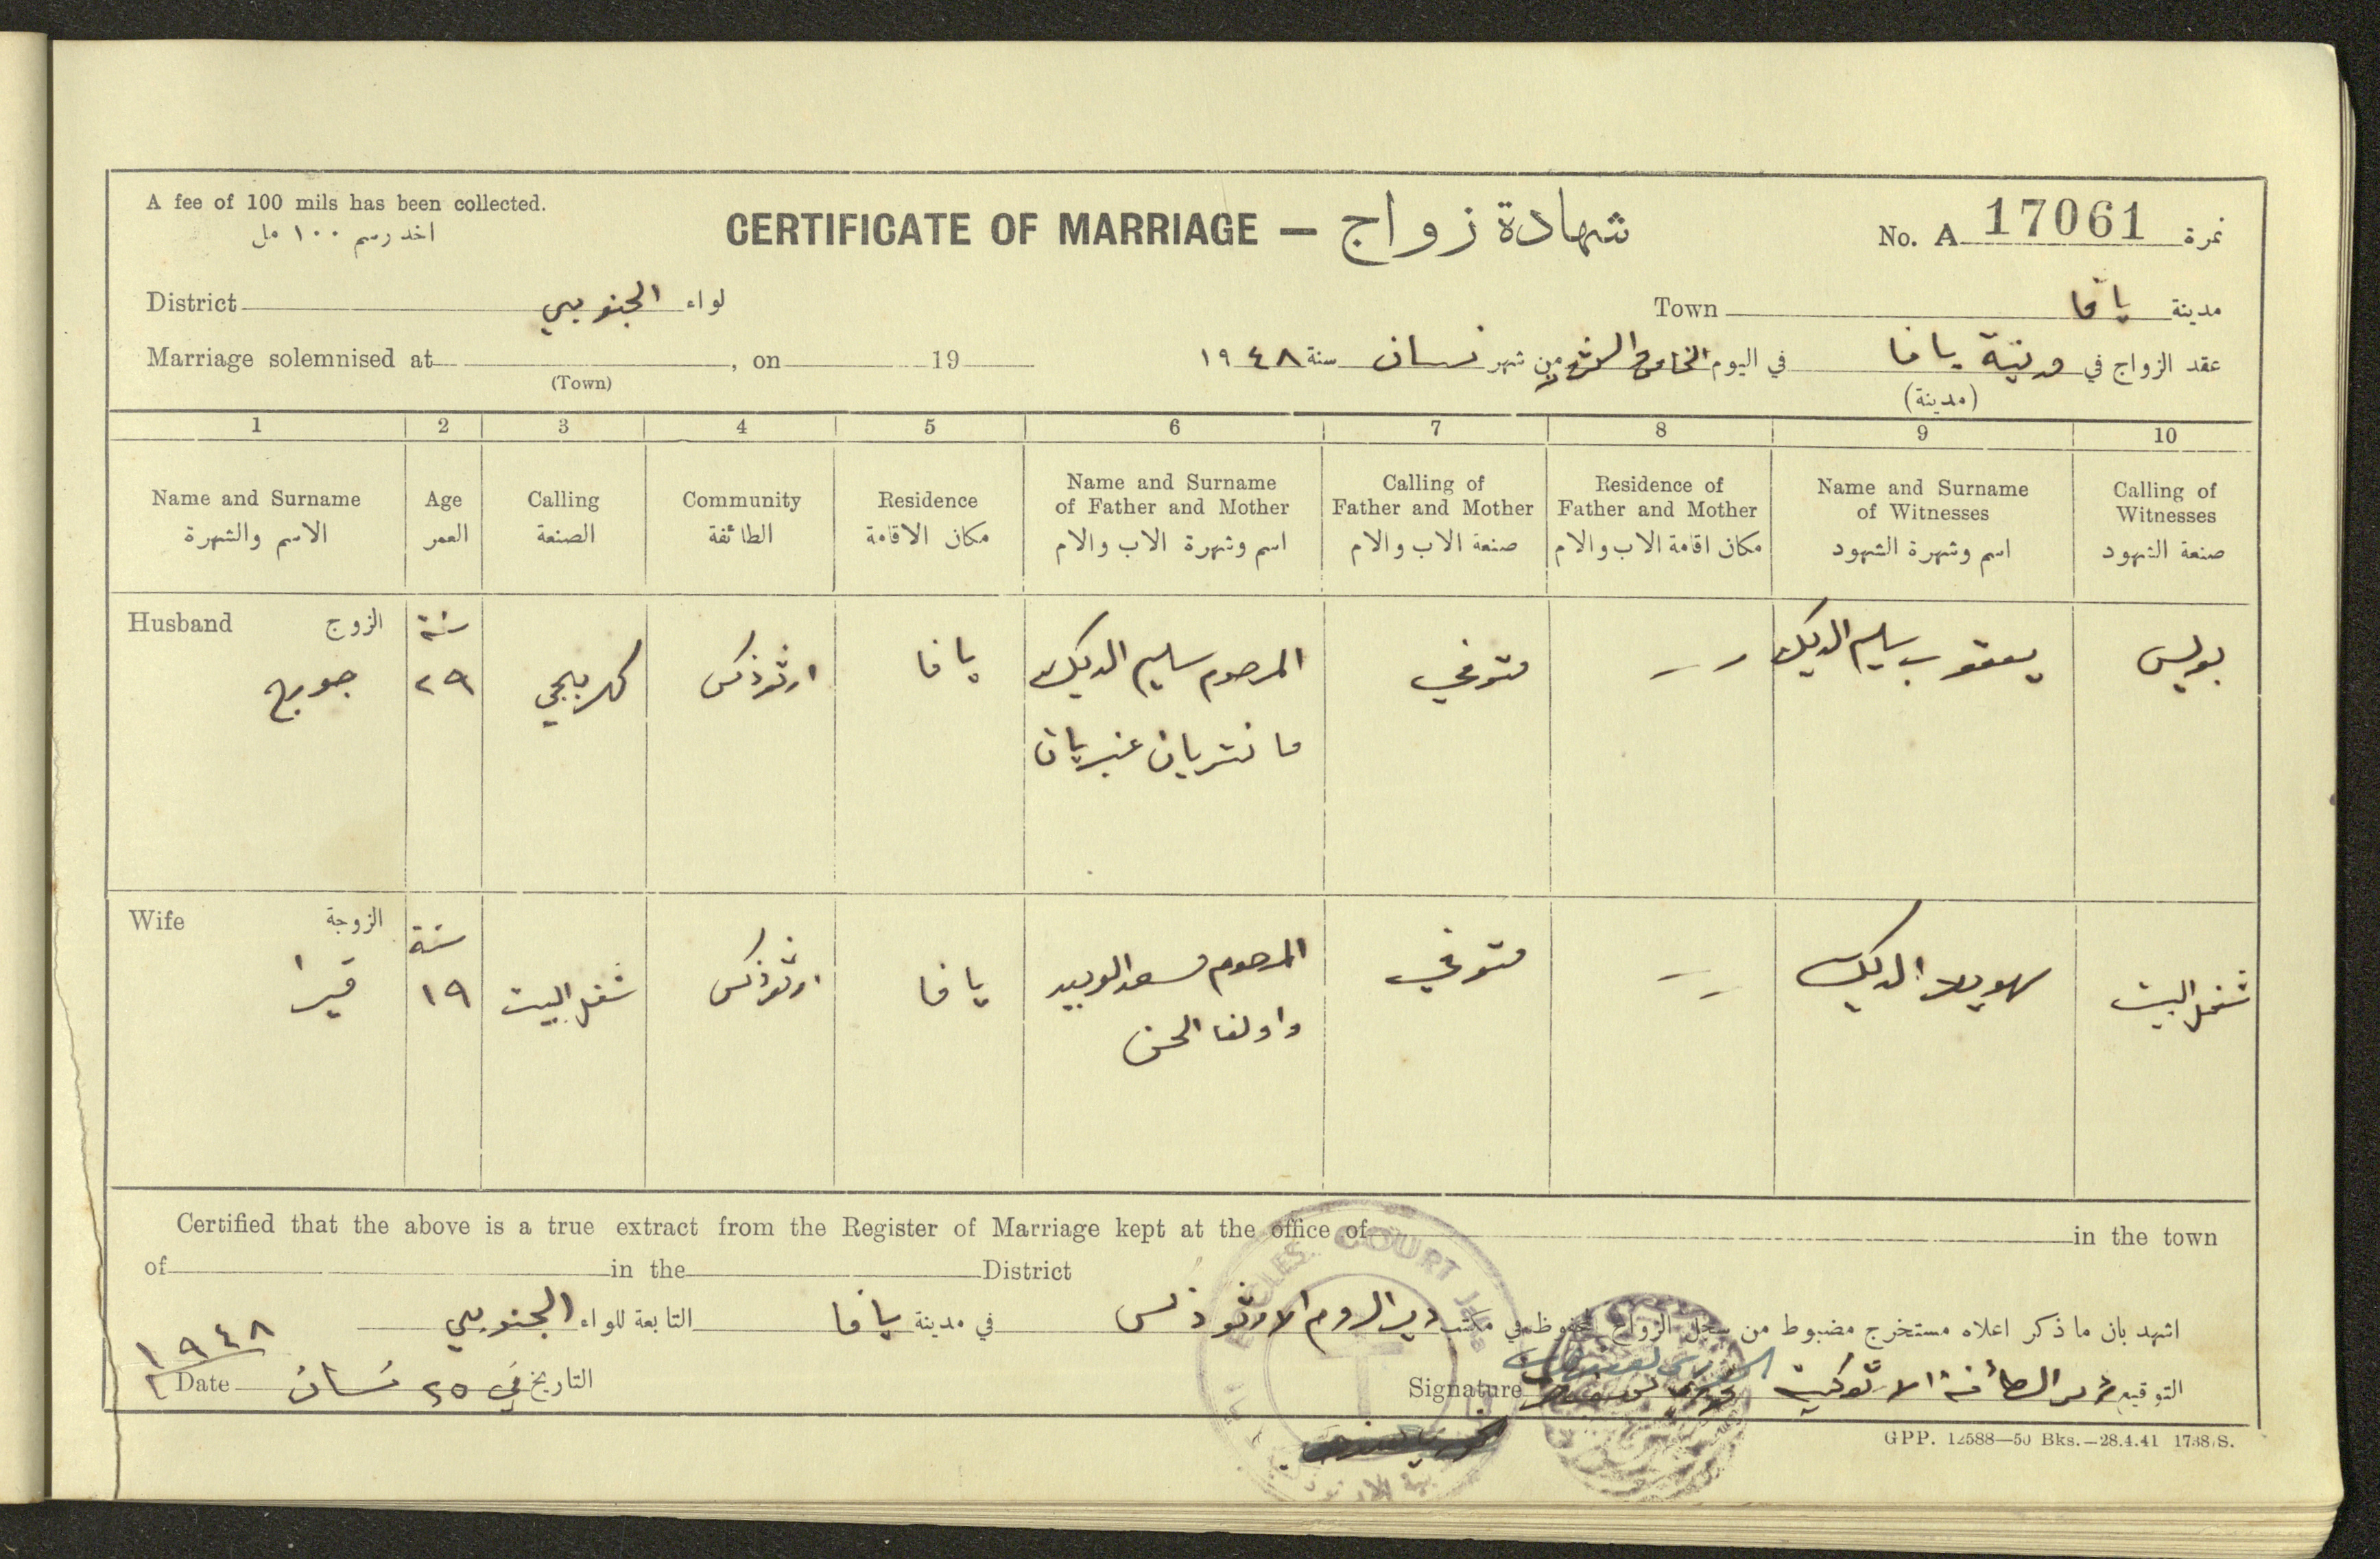 A fee of 100 mils has been collected.
اخذ رسم ١٠٠ مل
CERTIFICATE OF MARRIAGE — شهادة زواج
No. A 17061 نمرة
District الجنوبي لواء
Town يافا مدينة
Marriage solemnised at , on 19
(Town)
عقد الزواج في مدينة يافا في اليوم الخامس والعشرين من شهر نيسان سنة ١٩٤٨
(مدينة)
1 2 3 4 5 6 7 8 9 10
Name and Surname
الاسم والشهرة
Age
العمر
Calling
الصنعة
Community
الطائفة
Residence
مكان الاقامة
Name and Surname
of Father and Mother
اسم وشهرة الاب والام
Calling of
Father and Mother
صنعة الاب والام
Residence of
Father and Mother
مكان اقامة الاب والام
Name and Surname
of Witnesses
اسم وشهرة الشهود
Calling of
Witnesses
صنعة الشهود
Husband الزوج
جورج
سنة
٢٩
كهربجي
ارثوذكس
يافا
المرحوم سليم الديك
متوفي
يعقوب سليم الديك
بوليس
Wife الزوجة
سنة
١٩
شغل البيت
ارثوذكس
يافا
المرحوم سعد
متوفي
الديك
شغل البيت
Certified that the above is a true extract from the Register of Marriage kept at the office of in the town
of in the District
اشهد بان ما ذكر اعلاه مستخرج مضبوط من سجل الزواج المحفوظ في مكتب دير الروم الارثوذكس في مدينة يافا التابعة للواء الجنوبي
١٩٤٨
Date التاريخ في ٢٥ نيسان
Signature التوقيع
ECCLES. COURT
GPP. 12588—50 Bks.—28.4.41 1738/S.